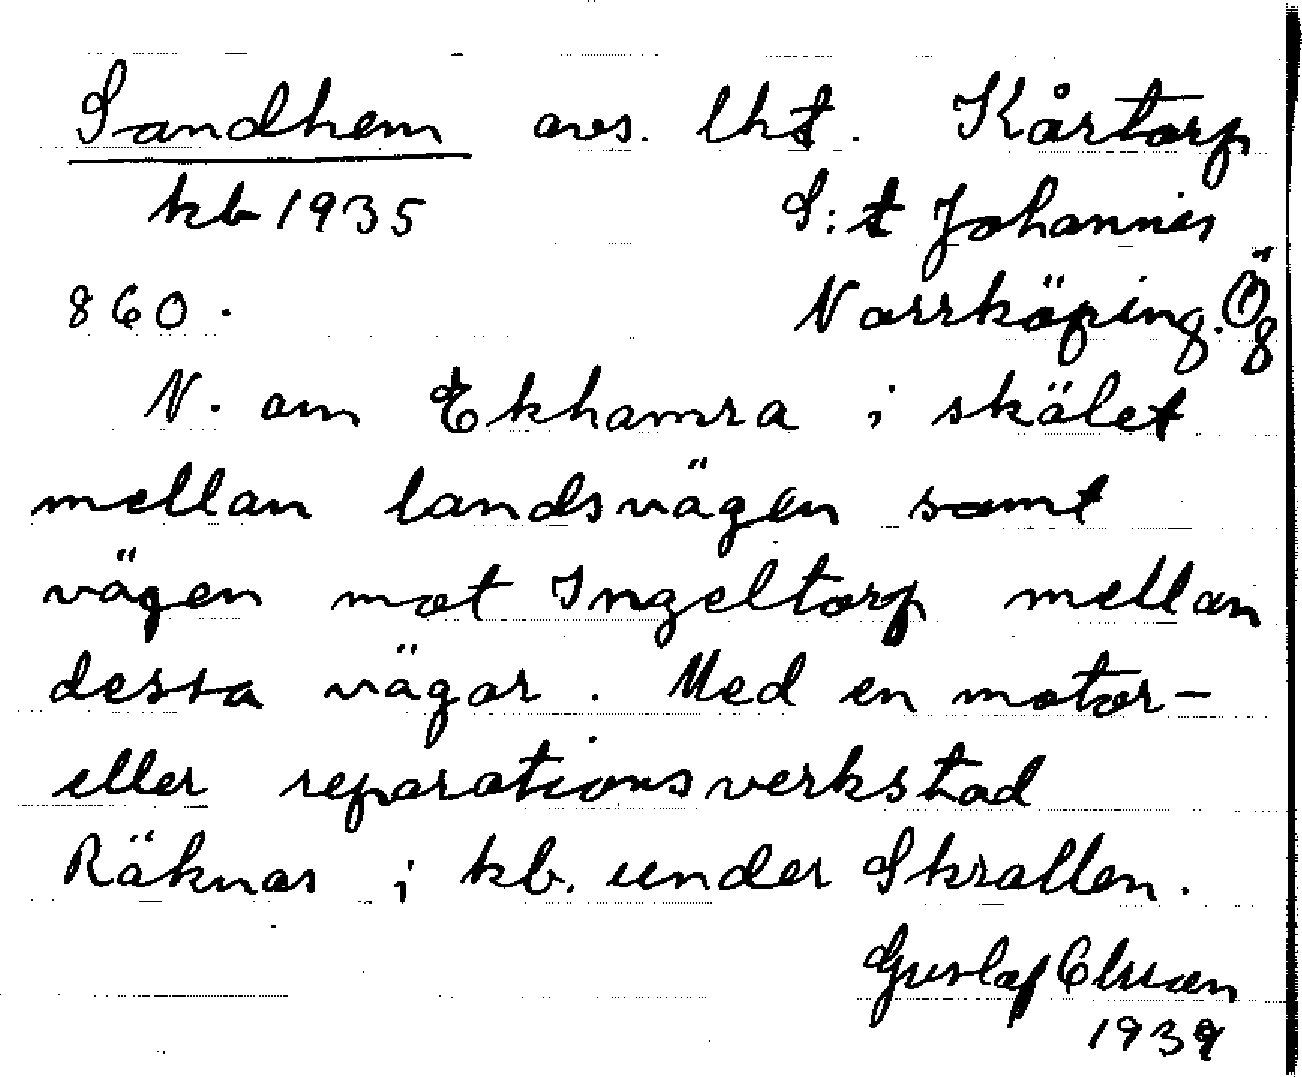 Sandhem avs. lht. Kårtorp
kb 1935 S:t Johannis
860. Norrköping. Ög
N. om Ekhamra i skälet
mellan landsvägen samt
vägen mot Ingeltorp mellan
dessa vägar. Med en motor-
eller reparationsverkstad
Räknas i kb. under Skrallen.
Gustaf
1939